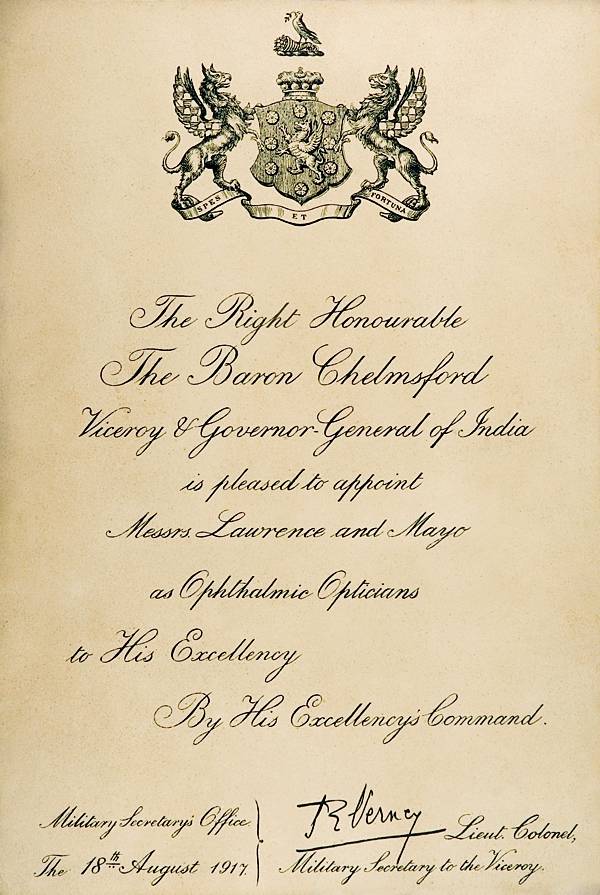 SPES ET FORTUNA
The Right Honourable
The Baron Chelmsford
Viceroy & Governor-General of India
is pleased to appoint
Messrs. Lawrence and Mayo
as Ophthalmic Opticians
to His Excellency
By His Excellency's Command.
Military Secretary's Office
The 18th August 1917.
R Verney Lieut. Colonel,
Military Secretary to the Viceroy.